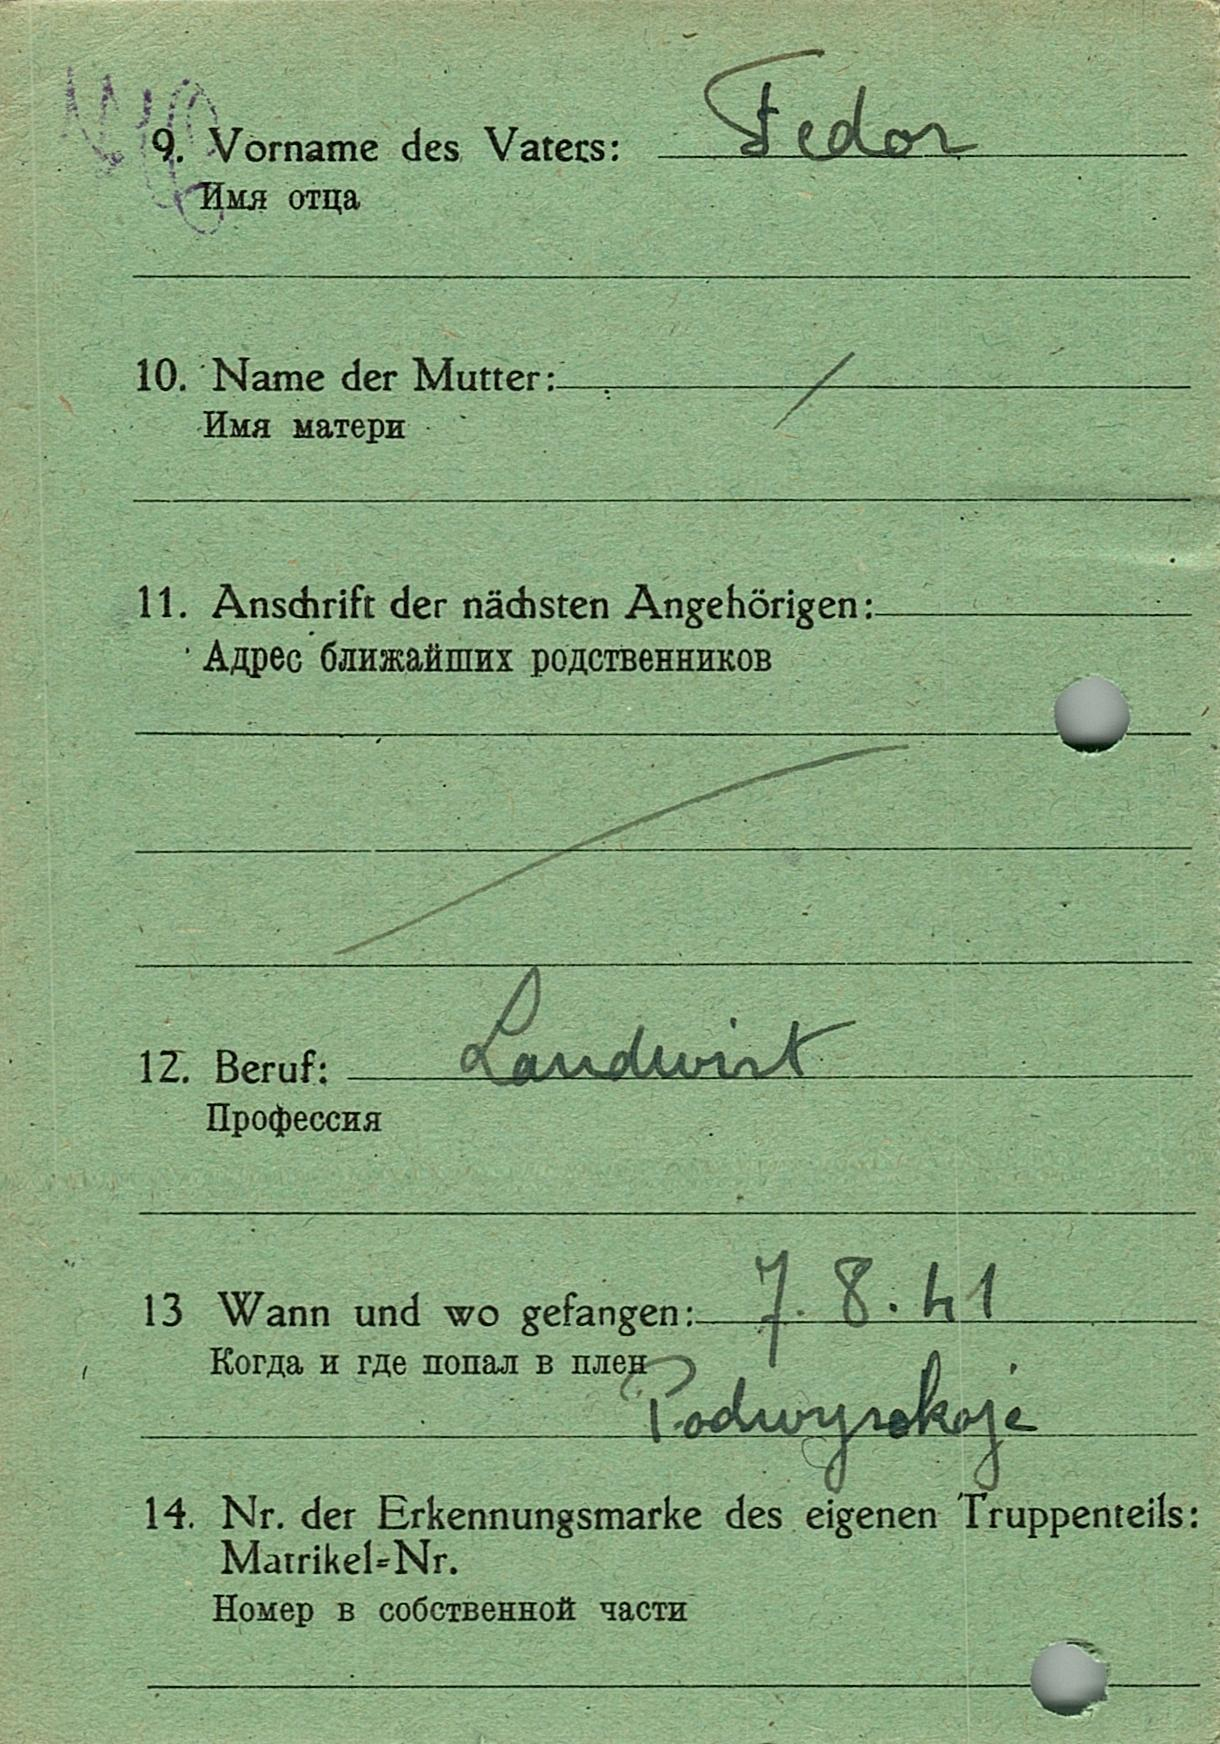 9. Vorname des Vaters: Fedor
Имя отца
10. Name der Mutter: /
Имя матери
11. Anschrift der nächsten Angehörigen:
Адрес ближайших родственников
12. Beruf: Landwirt
Профессия
13 Wann und wo gefangen: 7.8.41
Когда и где попал в плен
Podwyskoje
14. Nr. der Erkennungsmarke des eigenen Truppenteils:
Matrikel=Nr.
Номер в собственной части